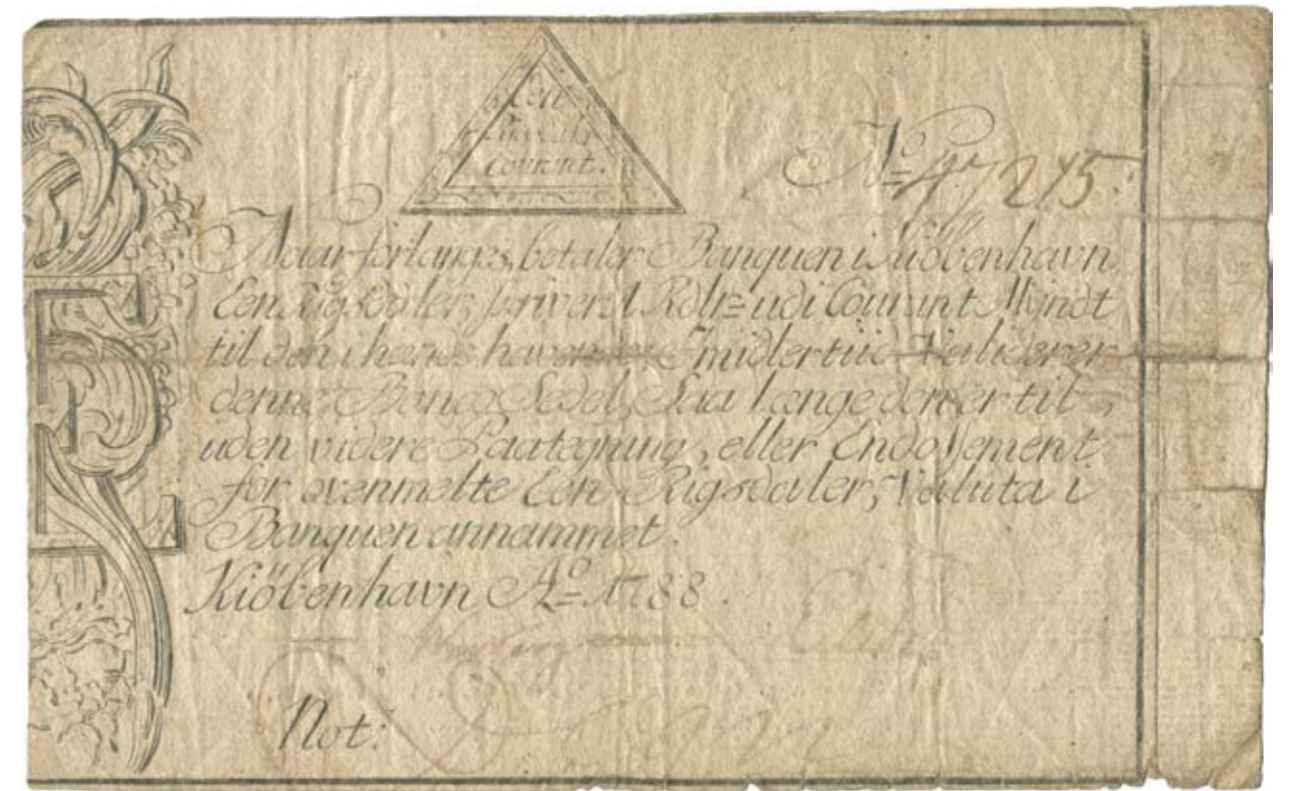 Een
Rigsdaler
Courant.
No
Naar forlanges, betaler Banquen i Kiöbenhavn
Een Rigsdaler, skriver 1 Rdlr= udi Courant Myndt
til den i hænde havende, midlertiid Validerer
denne Banco Sedel, Saa længe den er til,
uden videre Paategning, eller Endossement
for ovenmelte Een Rigsdaler, Valuta i
Banquen annammet.
Kiöbenhavn Ao 1788.
Not: